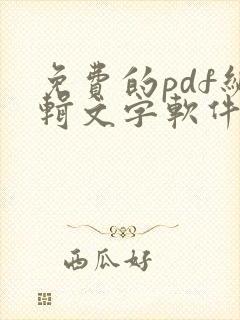 免費的pdf編
輯文字軟件
西瓜好